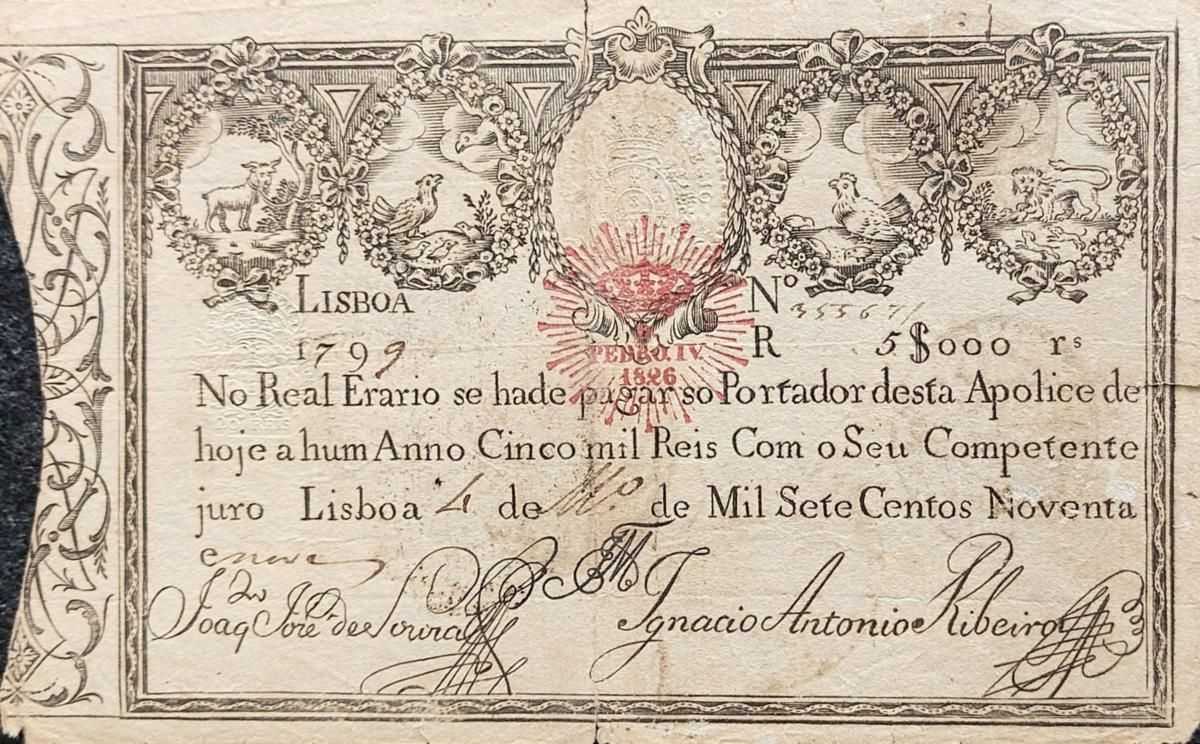 LISBOA
Nº 355671
1799
R 5$000 rs
PEDRO. IV.
1826
No Real Erario se hade pagar so Portador desta Apolice de
hoje a hum Anno Cinco mil Reis Com o Seu Competente
juro Lisboa 4 de Mº. de Mil Sete Centos Noventa
e nove
Joaq Jose de Souza
Ignacio Antonio Ribeiro